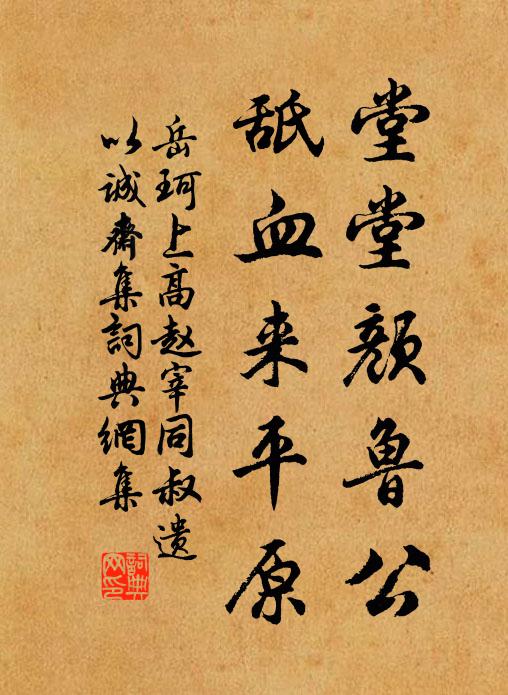 堂堂颜鲁公
舐血来平原
岳珂上高赵宰同叔遗
以诚斋集詞典網集
詞典网印